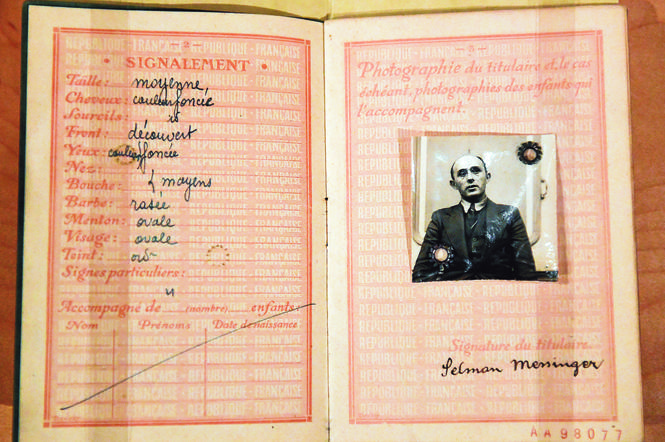 - 2 -
• SIGNALEMENT •
Taille : moyenne,
Cheveux : couleur foncée
Sourcils : id
Front : découvert
Yeux : couleur foncée
Nez :
Bouche : } moyens
Barbe : rasée
Menton : ovale
Visage : ovale
Teint :
Signes particuliers :
Accompagné de (nombre) enfants :
Nom Prénoms Date de naissance
Photographie du titulaire et, le cas
échéant, photographies des enfants qui
l'accompagnent.
Signature du titulaire.
Selman Menninger
AA98077
RÉPUBLIQUE - FRANÇAISE